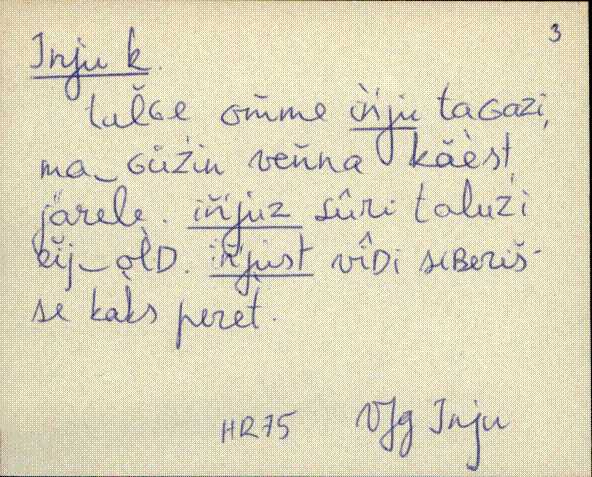 3
Inju k.
tulGe om̄me iń'ju taGazi,
ma_Güžin ven̄na käèst
järele. iń'juz sûri taluzi
eij_olD. iń'just vîDi siBeriš-
se kaks peret.
HR75 Vjg Inju